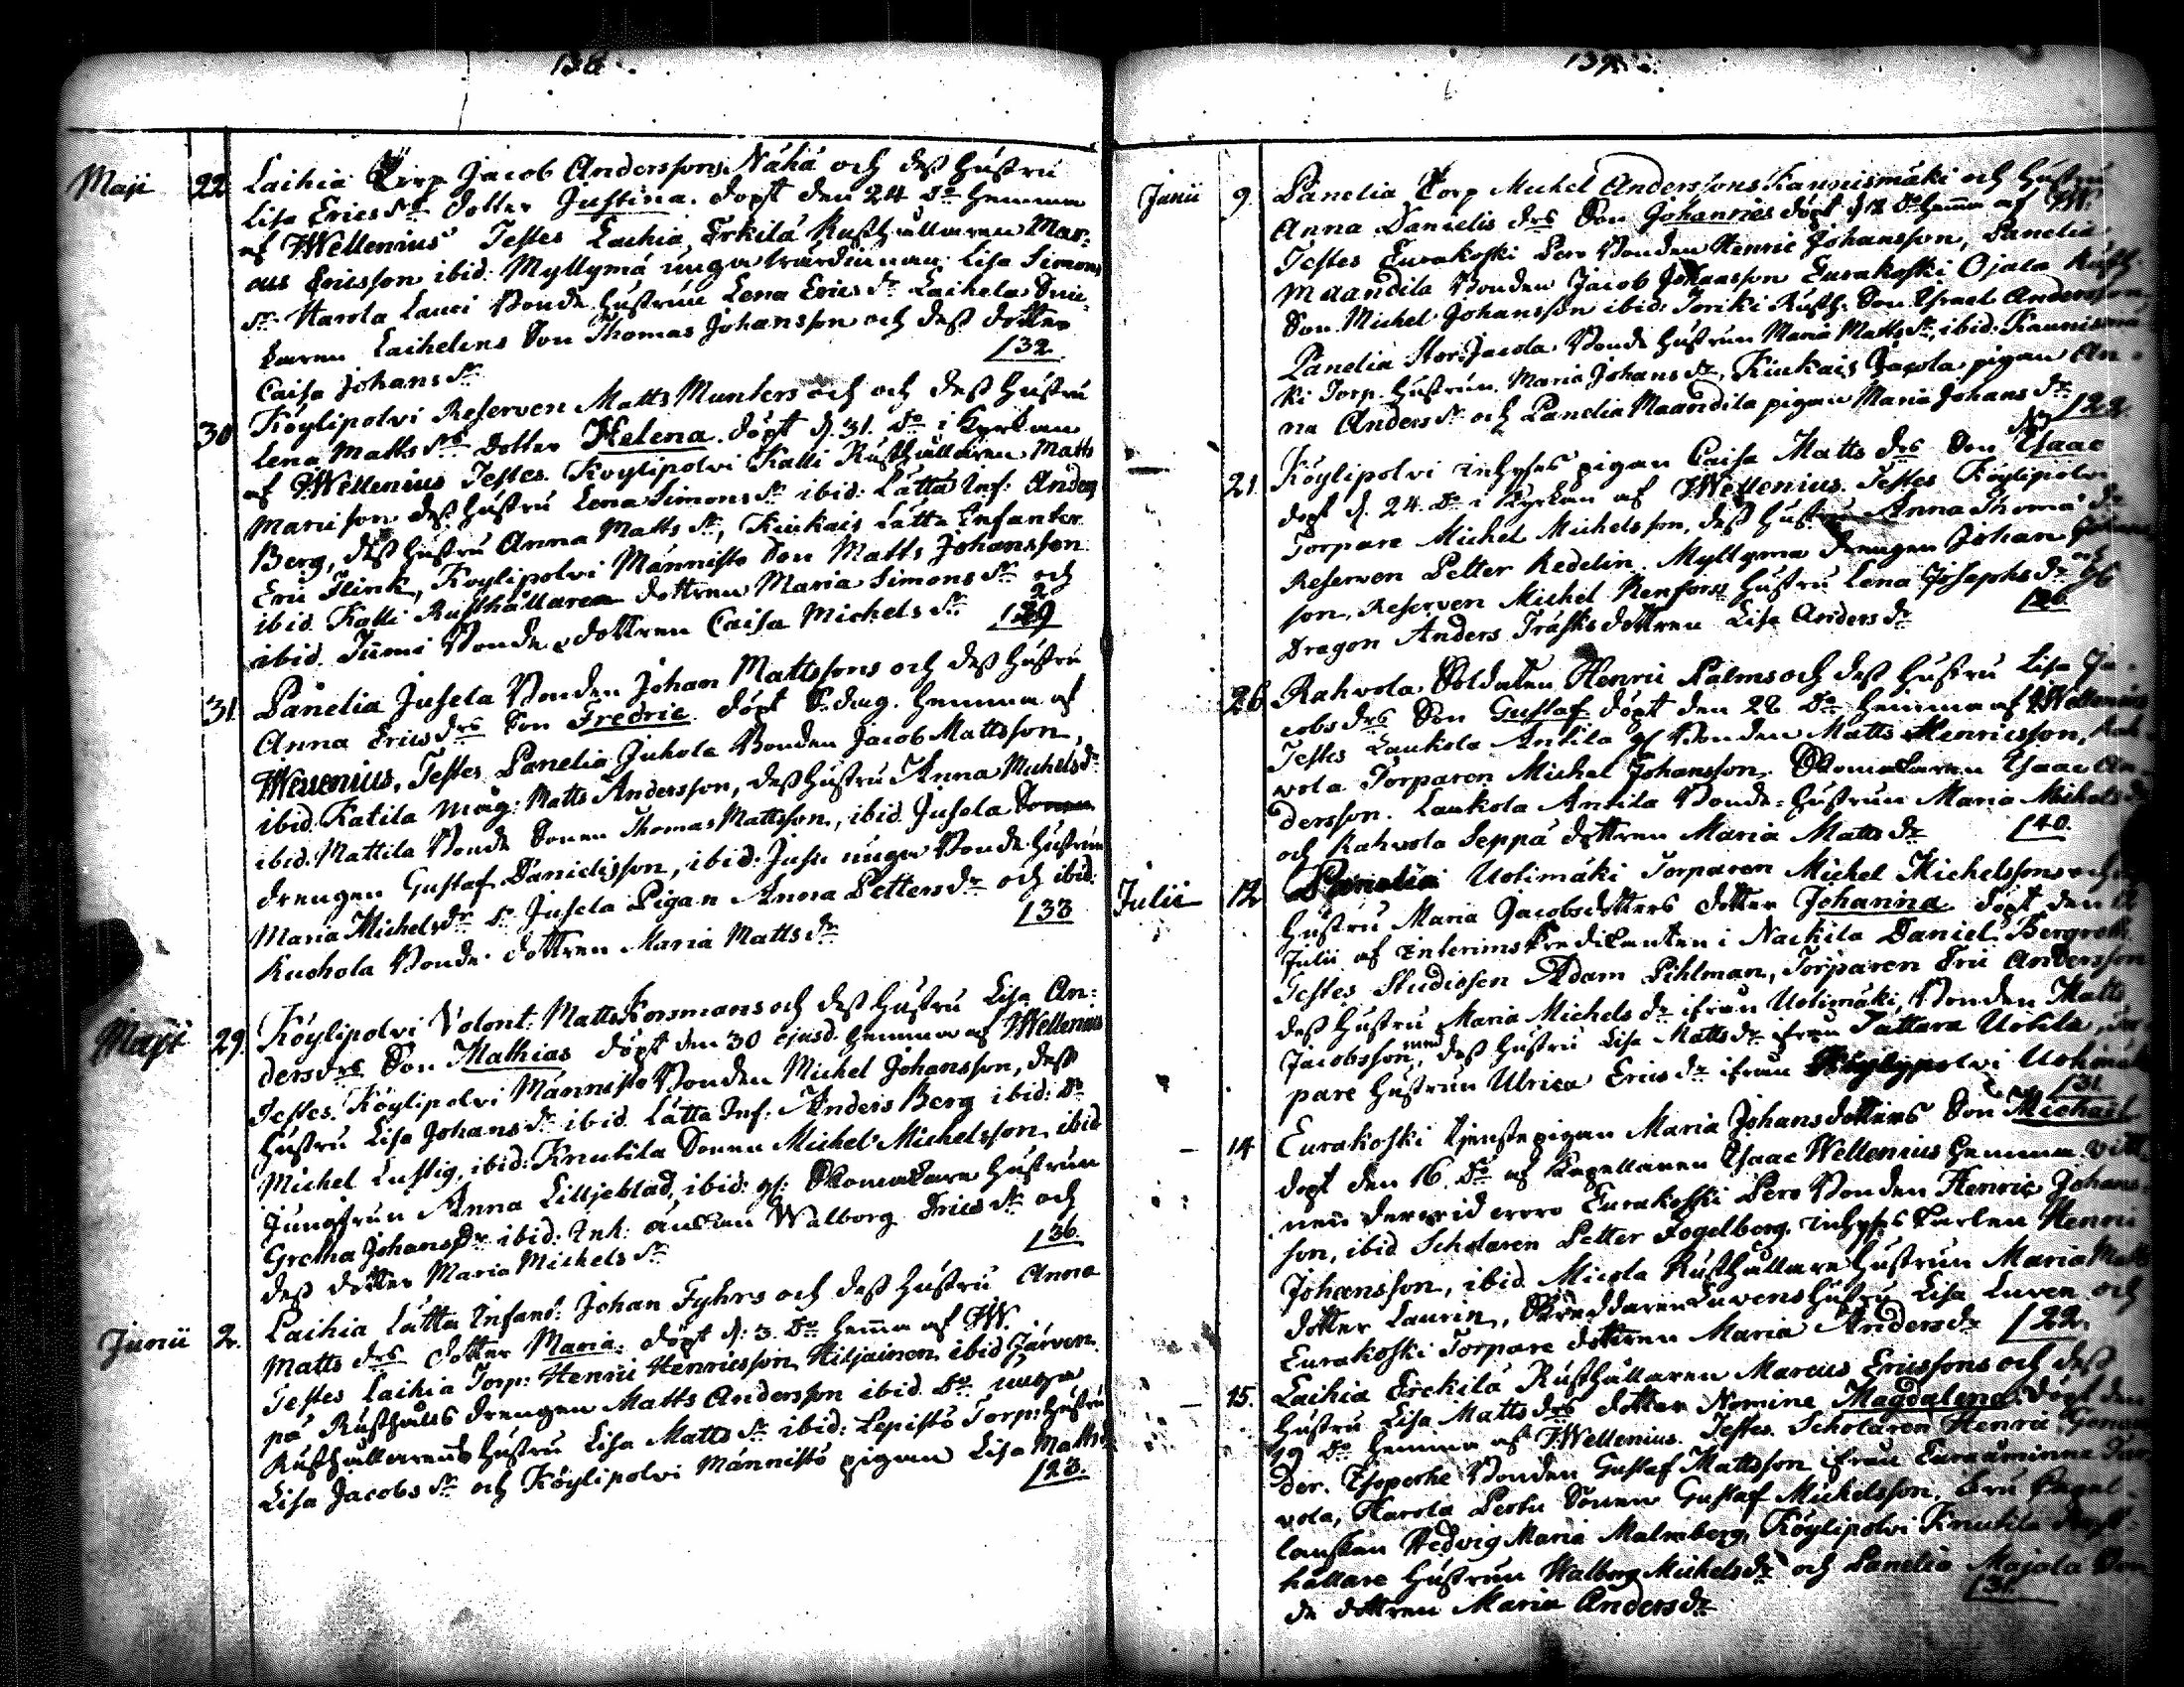 138.
Maji 22. Laihia Torp Jacob Anderssons Nähä och dess hustru
Lisa Ericsdrs dotter Justina. döpt den 24 do hemma
af IWellenius Testes Laihia, Erkilä Rusthållaren Mar-
cus Ericsson ibid: Myllymä unga wärdinnan Lisa Simons
dr Harola Lauri Bonde hustrun Lena Erics dr Laihela
karen Laihelens Son Thomas Johansson och dess dotter
Caisa Johans dr 132.
30 Köylipolvi Reserven Matts Munters och dess hustru
Lena Matts drs dotter Helena. döpt d. 31. do i Kyrkan
af IWellenius Testes. Köylipolvi Kalli Rusthållaren Matts
dess hustru Lena Simons dr ibid: Lätta Inf: Anders
Berg, dess hustru Anna Matts dr, Kiukais Lätta Infanter
Eric Flink, Köylipolvi Männistö Son Matts Johansson
ibid. Kalli Rusthållaren dottren Maria Simons dr och
ibid. Tuomi Bonde dottren Caisa Michels dr 129
31. Panelia Jusela Bonden Johan Mattssons och dess hustru
Anna Erics drs Son Fredric döpt s. dag. hemma af
IWellenius. Testes Panelia Juhola Bonden Jacob Mattsson,
ibid. Katila måg: Matts Andersson, dess hustru Anna Michels dr
ibid. Mattila Bonde Sonen Thomas Mattsson, ibid. Jusela
drengen Gustaf Danielsson, ibid: Jusu unga Bonde hustrun
Maria Michels dr Jusela Pigan Anna Petters dr och ibid:
Kuohola Bonde dottren Maria Matts dr 133
Maji 29. Köylipolvi Volont: Matts Korsmans och dess hustru Lisa An-
ders drs Son Mathias döpt den 30 ejusd. hemma af IWellenius
Testes. Köylipolvi Männistö Bonden Michel Johansson, dess
hustru Lisa Johans dr ibid. Lätta Inf: Anders Berg ibid: do
Michel Lustig, ibid: Knutila Sonen Michel Michelsson, ibid
Jungfrun Anna Lilljeblad, ibid: gl: Skomakare hustrun
Gretha Johans dr ibid: Inh: änkan Walborg Erics dr och
dess dotter Maria Michels dr 136.
Junii 2. Laihia Lätta Infant: Johan Fyhrs och dess hustru Anna
Matts drs dotter Maria. döpt d: 3. do hema af IW.
Testes Laihia Torp: Henric Henricsson Hiljainen ibid Järven
pä Rusthålls drengen Matts Andersson ibid. do unga
Rusthållarens hustru Lisa Matts dr ibid: Lepistö Torp: hustru
Lisa Jacobs dr och Köylipolvi Männistö pigan Lisa Matts dr
123.
139.
Junii 9. Panelia Torp Michel Anderssons Kaunismäki och hustru
Anna Daniels drs Son Johannes döpt d 12 do hema af IW.
Testes Eurakoski Pero Bonden Henric Johansson, Panelia
Maandila Bonden Jacob Johansson Eurakoski Ojala Rusth.
Son Michel Johansson ibid: Rusth: Son Israel Andersson,
Panelia Stor Jacola Bonde hustrun Maria Matts dr, ibid: Kaunismä
ki Torp. hustrun Maria Johans dr, Kiukais Jacola pigan An-
na Anders dr och Panelia Maandila pigan Maria Johans dr
122
21. Köylipolvi inhyses pigan Caisa Matts drs Son Isaac
döpt d. 24. do i Kyrkan af IWellenius. Testes Köylipolvi
Torpare Michel Michelsson, dess hustru Anna Thoma dr
Reserven Petter Redelin. Myllymä drengen Johan
son, Reserven Michel Renfors hustru Lena Josephs dr och
Dragon Anders Träsks dottren Lisa Anders dr 126
26. Rahvola Soldaten Henric Palms och dess hustru Lisa Ja-
cobs drs Son Gustaf döpt den 28 do hemma af IWellenius
Testes Laukola Antila gl Bonden Matts Henricsson, Rah-
vola Torparen Michel Johansson. Skomakaren Isaac An-
dersson. Laukola Antila Bonde-hustrun Maria Michels dr
och Rahvola Seppä dottren Maria Matts dr 140.
Julii 12 Uotimäki Torparen Michel Michelssons och
hustru Maria Jacobsdotters dotter Johanna döpt den 12
Julii af Interims Predikanten i Nackila Daniel Bergroth.
Testes Studiosen Adam Pihlman, Torparen Eric Andersson
dess hustru Maria Michels dr ifrån Uotimäki, Bonden Matts
Jacobsson, med dess hustru Lisa Matts dr ifrån Tattara Uotila, Tor-
pare hustrun Ulrica Erics dr ifrån Köylypolvi Uotimäki
131.
14. Eurakoski tjenstepigan Maria Johansdotters Son Michael
döpt den 16. do af Kapellanen Isaac Wellenius hemma. vitt-
nen dervid woro Eurakoski Pero Bonden Henric Johans-
son, ibid Scholaren Petter Fogelberg. inhyses karlen Henric
Johansson, ibid Micola Rusthållare hustrun Maria Matts
dotter Laurin, Skräddaren Luvens hustru Lisa Luven och
Eurakoski Torpare dottren Maria Anders dr 122.
15. Laihia Erckilä Rusthållaren Marcus Ericssons och dess
hustru Lisa Matts drs dotter Nomine Magdalena. döpt den
19 do hemma af IWellenius. Testes. Scholaren Henric
der. Bonden Gustaf Mattsson ifrån Euraåminne
vola, Harola Pertu Sonen Gustaf Michelsson. Fru Capel-
lanskan Hedvig Maria Malmberg, Köylipolvi Knutila Rust-
hållare hustrun Walborg Michels dr och Panelia Majala Bon
de dottren Maria Anders dr 131.